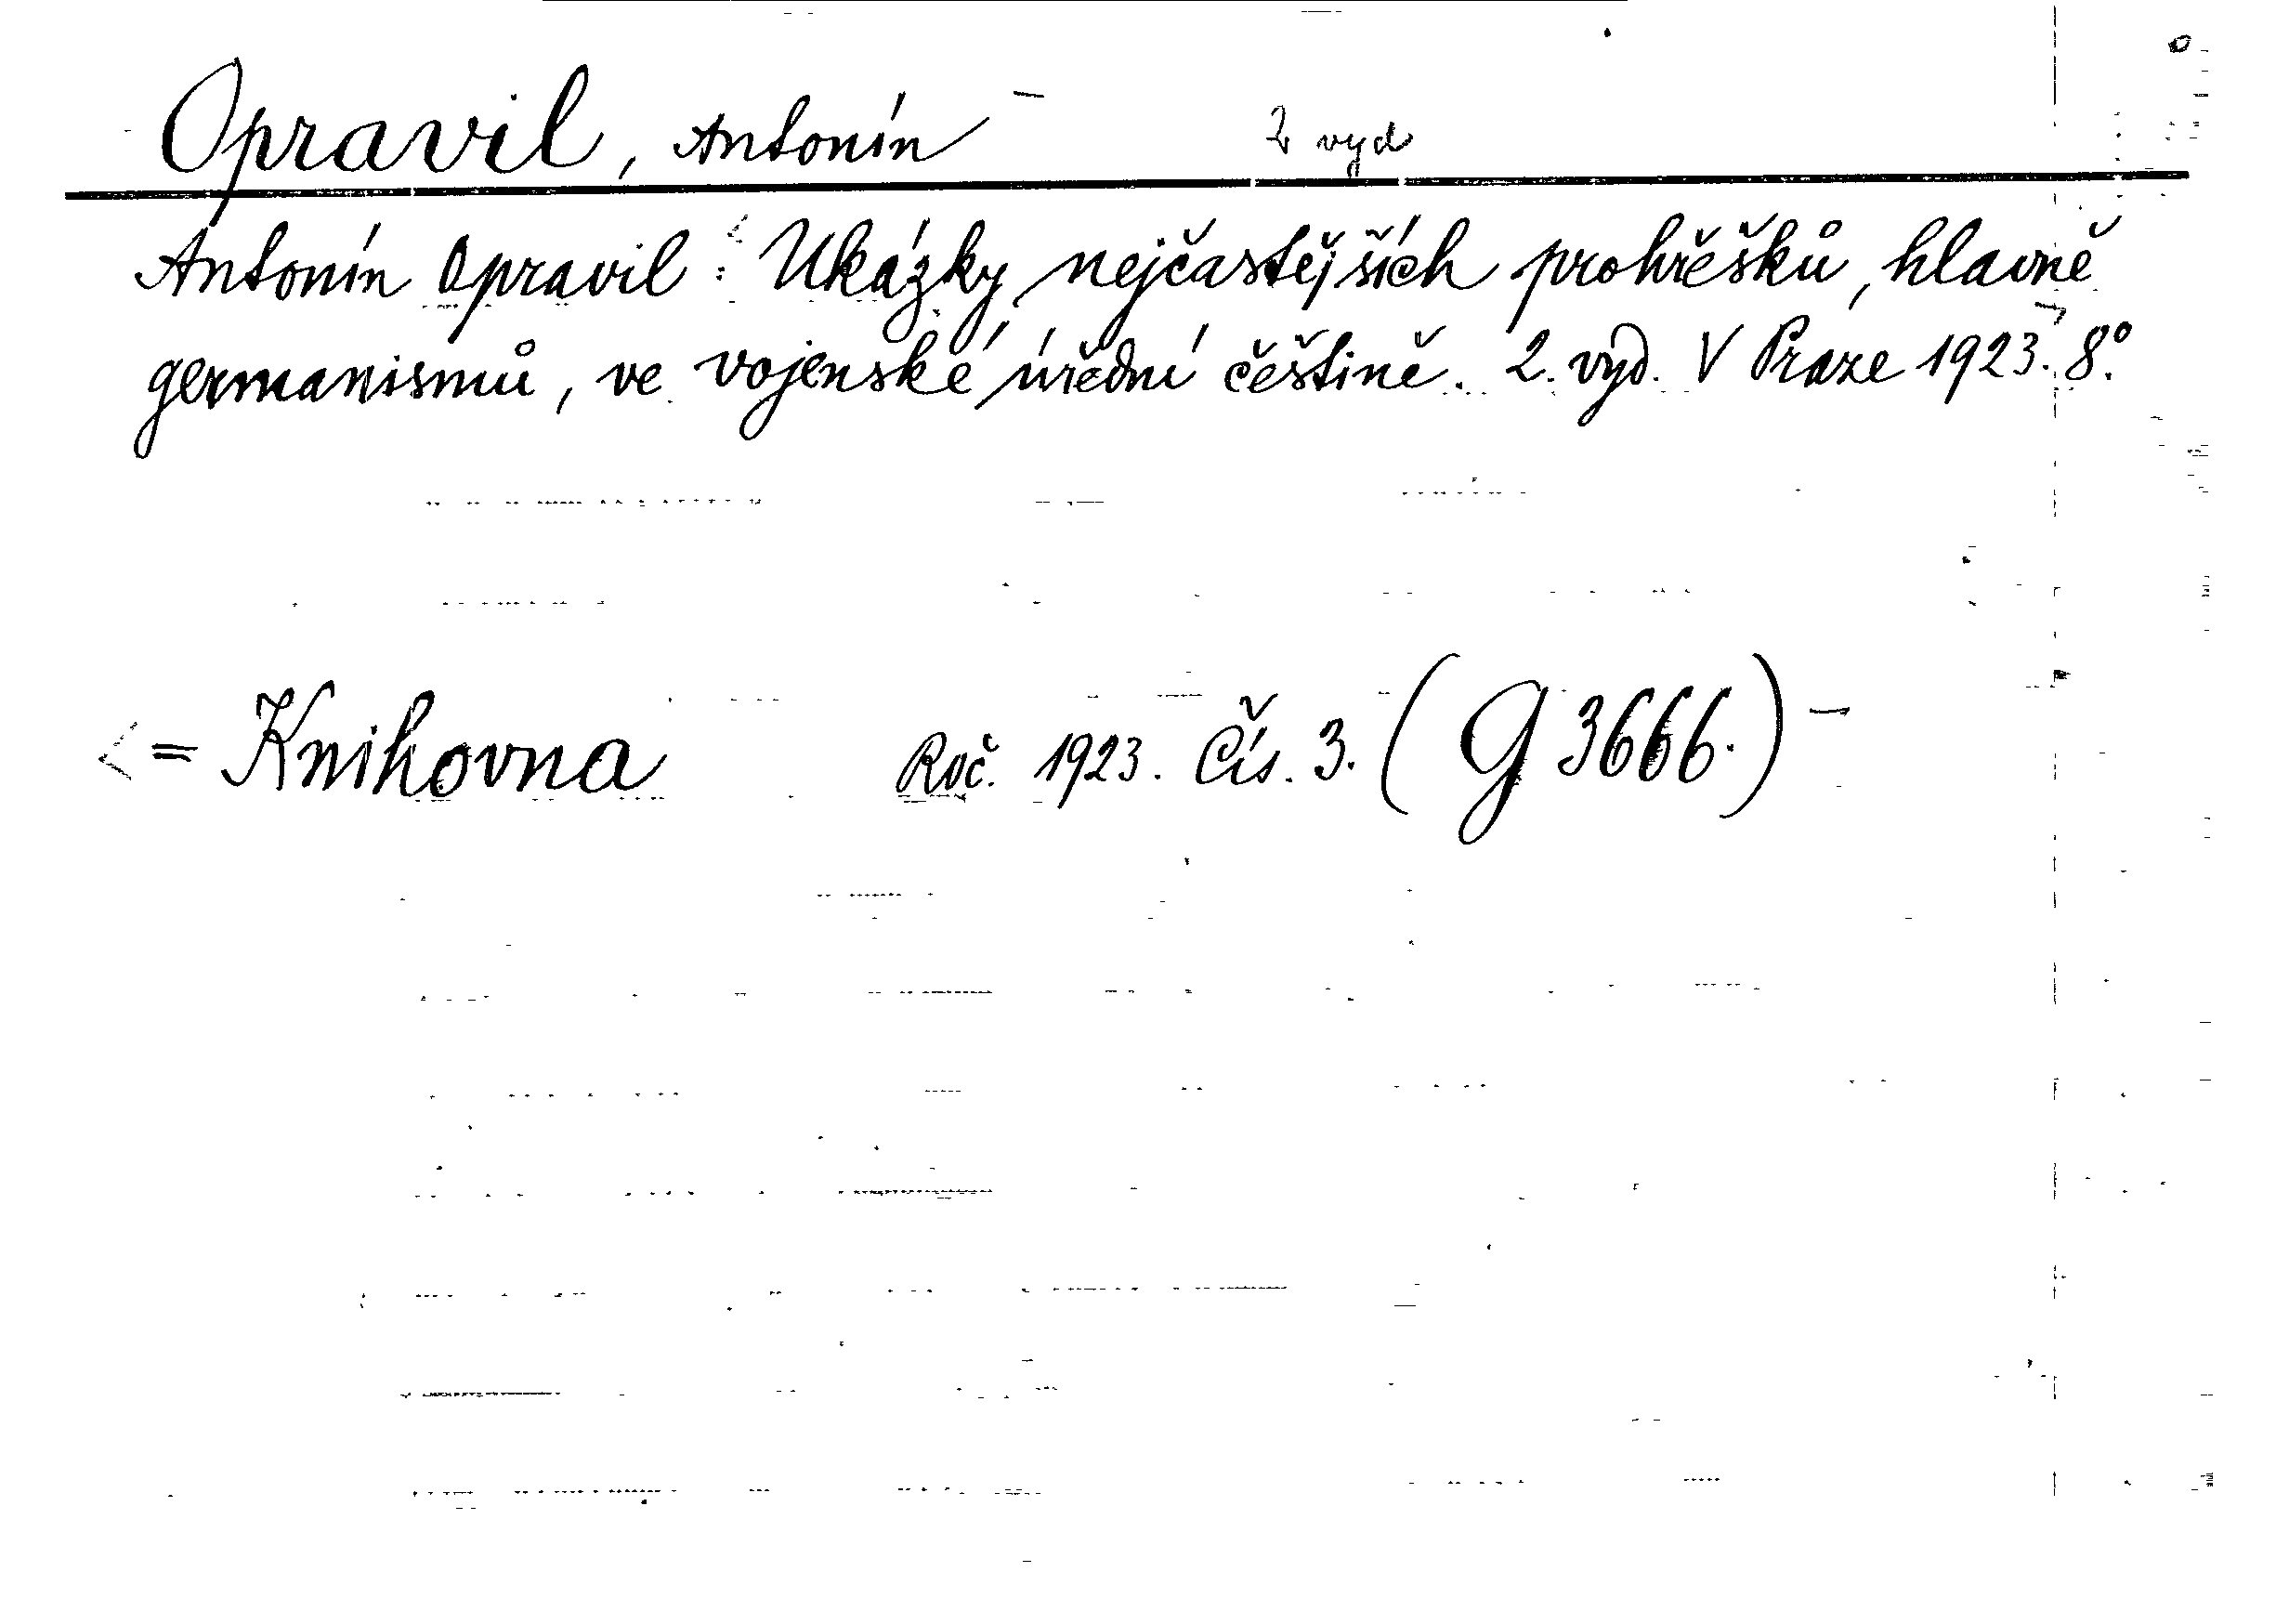 Opravil, Antonín 2 vyd
Antonín Opravil : Ukázky nejčastějších prohřešků, hlavně
germanismů, ve vojenské úřední češtině. 2. vyd. V Praze 1923. 8°.
= Knihovna Roč. 1923. Čís. 3. (G 3666.)